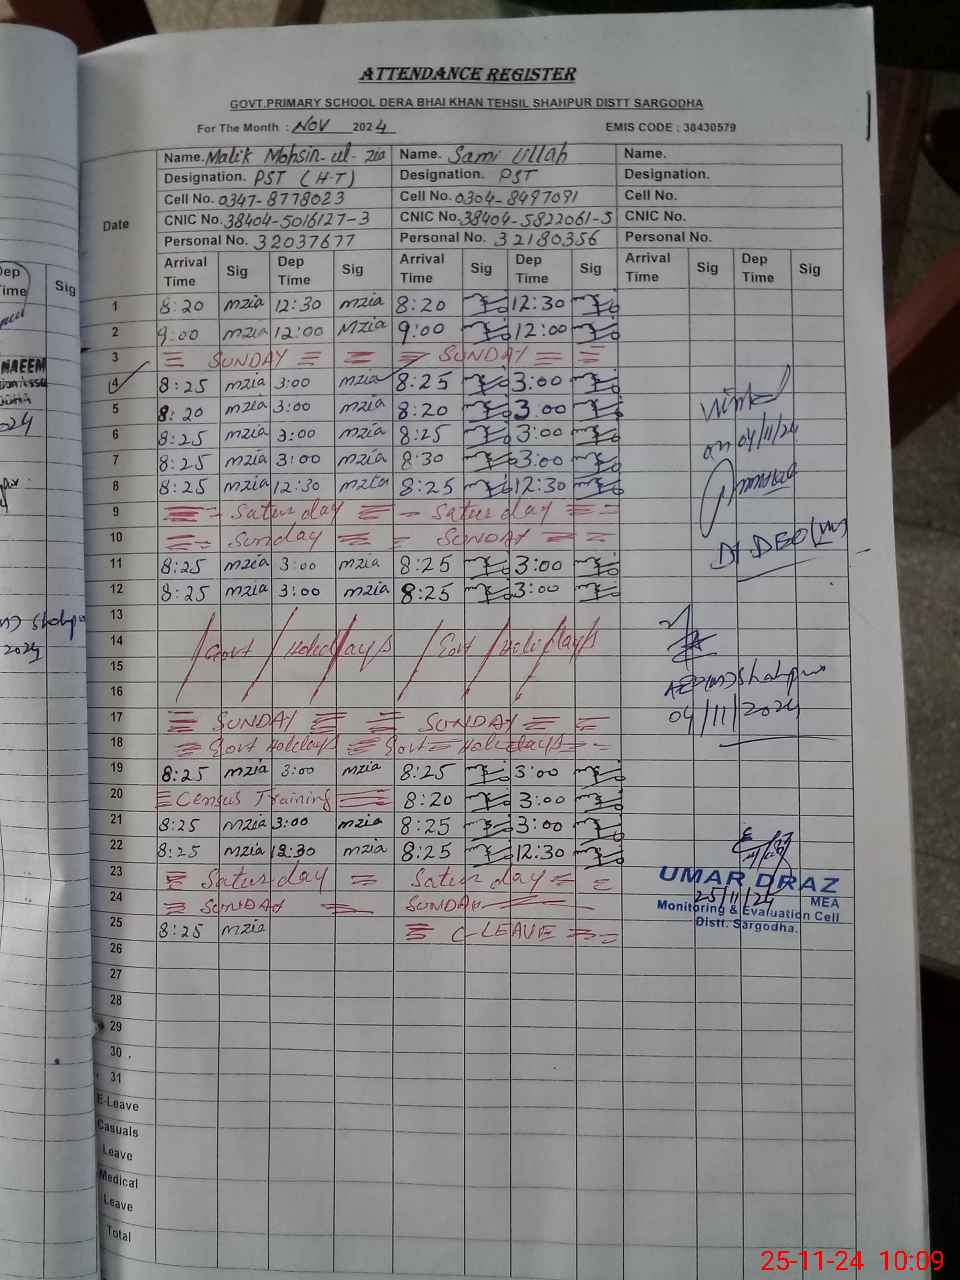 ATTENDANCE REGISTER
GOVT.PRIMARY SCHOOL DERA BHAI KHAN TEHSIL SHAHPUR DISTT SARGODHA
For The Month : NOV 2024 EMIS CODE : 38430579
Date
Name. Malik Mohsin-ul-zia Name. Sami Ullah Name.
Designation. PST (H-T) Designation. PST Designation.
Cell No. 0347-8778023 Cell No. 0304-8497091 Cell No.
CNIC No. 38404-5016127-3 CNIC No. 38404-5822061-5 CNIC No.
Personal No. 32037677 Personal No. 32180356 Personal No.
Arrival Time Sig Dep Time Sig Arrival Time Sig Dep Time Sig Arrival Time Sig Dep Time Sig
1 8:20 mzia 12:30 mzia 8:20 12:30
2 9:00 mzia 12:00 Mzia 9:00 12:00
3 SUNDAY SUNDAY
4 8:25 mzia 3:00 mzia 8:25 3:00
5 8:20 mzia 3:00 mzia 8:20 3:00
6 8:25 mzia 3:00 mzia 8:25 3:00
7 8:25 mzia 3:00 mzia 8:30 3:00
8 8:25 mzia 12:30 mzia 8:25 12:30
9 Saturday Saturday
10 Sunday SUNDAY
11 8:25 mzia 3:00 mzia 8:25 3:00
12 8:25 mzia 3:00 mzia 8:25 3:00
13
14 Govt Holidays Govt Holidays
15
16
17 SUNDAY SUNDAY
18 Govt Holidays Govt Holidays
19 8:25 mzia 3:00 mzia 8:25 3:00
20 Census Training 8:20 3:00
21 8:25 mzia 3:00 mzia 8:25 3:00
22 8:25 mzia 12:30 mzia 8:25 12:30
23 Saturday Saturday
24 SUNDAY SUNDAY
25 8:25 mzia C-LEAVE
26
27
28
29
30
31
E-Leave
Casuals Leave
Medical Leave
Total
on 04/11/24
Dy. DEO
Shahpur
04/11/2024
UMAR DRAZ
25/11/24
MEA
Monitoring & Evaluation Cell
Distt. Sargodha.
Dep Time Sig
NAEEM
Shahpur
2024
25-11-24 10:09